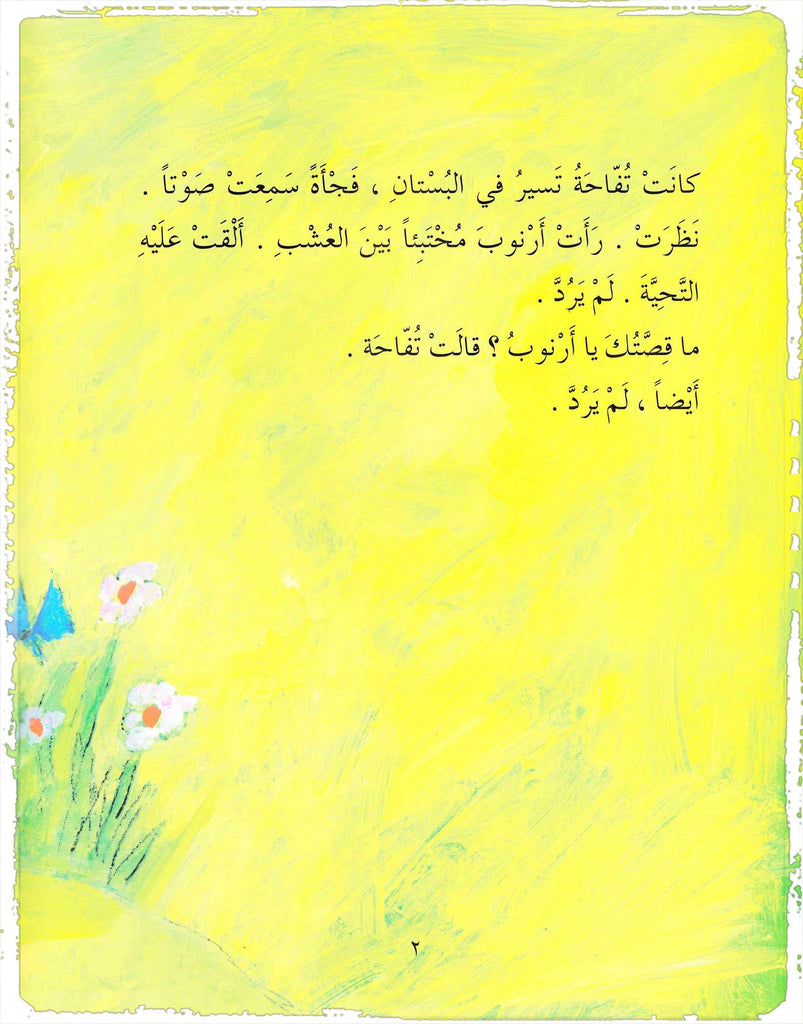 كانَتْ تُفّاحَةُ تَسيرُ في البُسْتانِ ، فَجْأَةً سَمِعَتْ صَوْتاً .
نَظَرَتْ . رَأَتْ أَرْنوبَ مُخْتَبِئاً بَيْنَ العُشْبِ . أَلْقَتْ عَلَيْهِ
التَّحِيَّةَ . لَمْ يَرُدَّ .
ما قِصَّتُكَ يا أَرْنوبُ ؟ قالَتْ تُفّاحَة .
أَيْضاً ، لَمْ يَرُدَّ .
٢